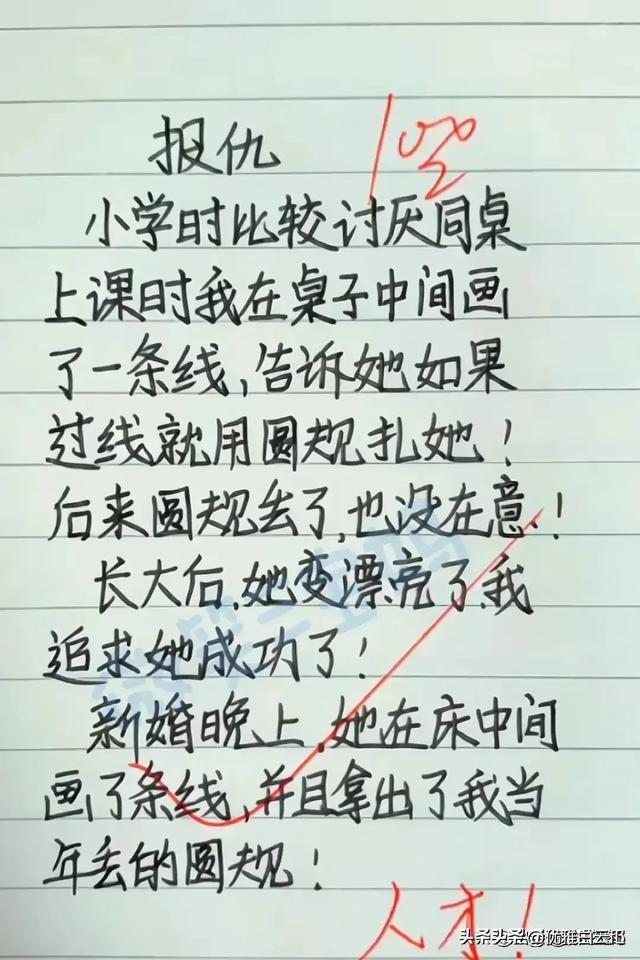 报仇
100
小学时比较讨厌同桌
上课时我在桌子中间画
了一条线,告诉她如果
过线就用圆规扎她!
后来圆规丢了,也没在意.!
长大后,她变漂亮了,我
追求她成功了!
新婚晚上,她在床中间
画了条线,并且拿出了我当
年丢的圆规!
人才!